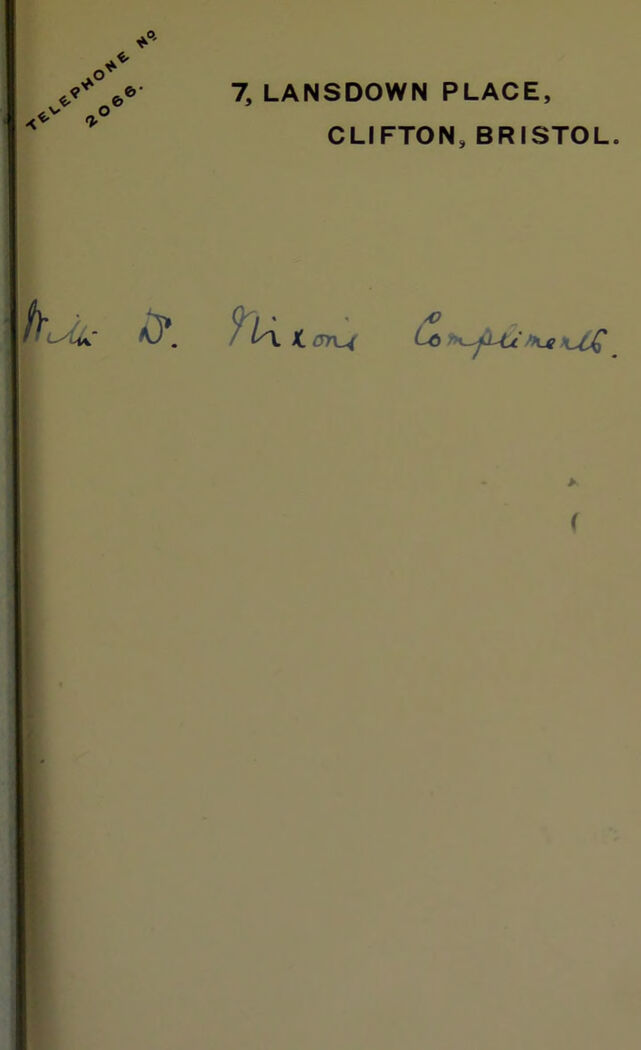 TELEPHONE Nº
2066.
7, LANSDOWN PLACE,
CLIFTON, BRISTOL.
With Dr. Nixon's Compliments.